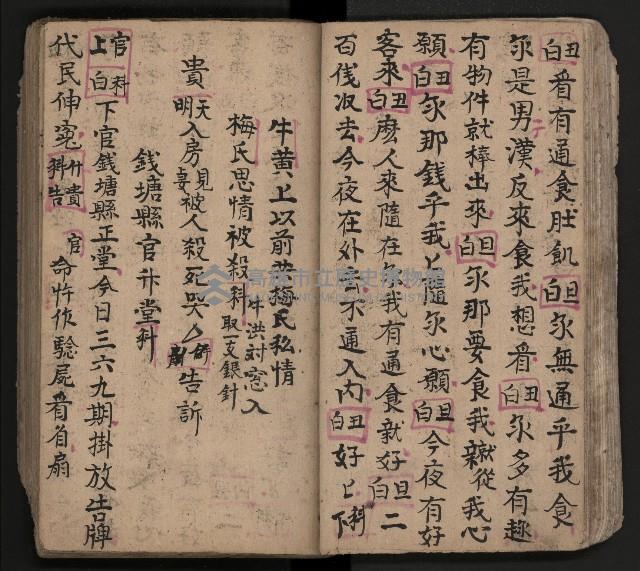 丑白 看有通食肚飢 旦白 尔無通乎我食
尔是男漢反來食我想看 丑白 尔多有趣
有物件就棒出來 旦白 尔那要食我就從我心
願 丑白 尔那錢乎我卜隨尔心願 旦白 今夜有好
客來 丑白 麽人來隨在尔我有通食就好 旦白 二
百伐收去今夜在外 不通入內 丑白 好卜 科下
牛黃上以前 梅氏私情
梅氏思情被殺科 牛洪討窓入取一支銀針
貴
天明入房見妻被人殺死哭 告訴
錢塘縣官升堂科
官上 科白 下官錢塘縣正堂今日三六九期掛放告牌
代民伸冤 什貴科告 官 命忤作驗屍看首扇
高雄市立歷史博物館